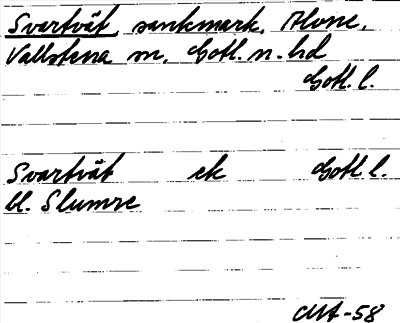 Svartvät, sankmark, Alvne,
Vallstena sn, Gotl. n. hd
Gotl. l.
Svartvät ek Gotl l.
bl. Slumre
-58